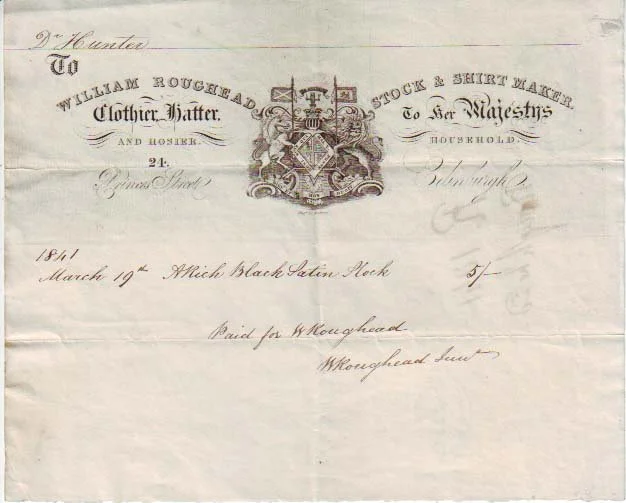 Dr Hunter
To
WILLIAM ROUGHEAD, STOCK & SHIRT MAKER.
Clothier, Hatter. To Her Majestys
AND HOSIER. HOUSEHOLD.
24.
Princes Street Edinburgh
1841
March 19th A Rich Black Satin Stock 5/-
Paid for W Roughead
W Roughead Junr